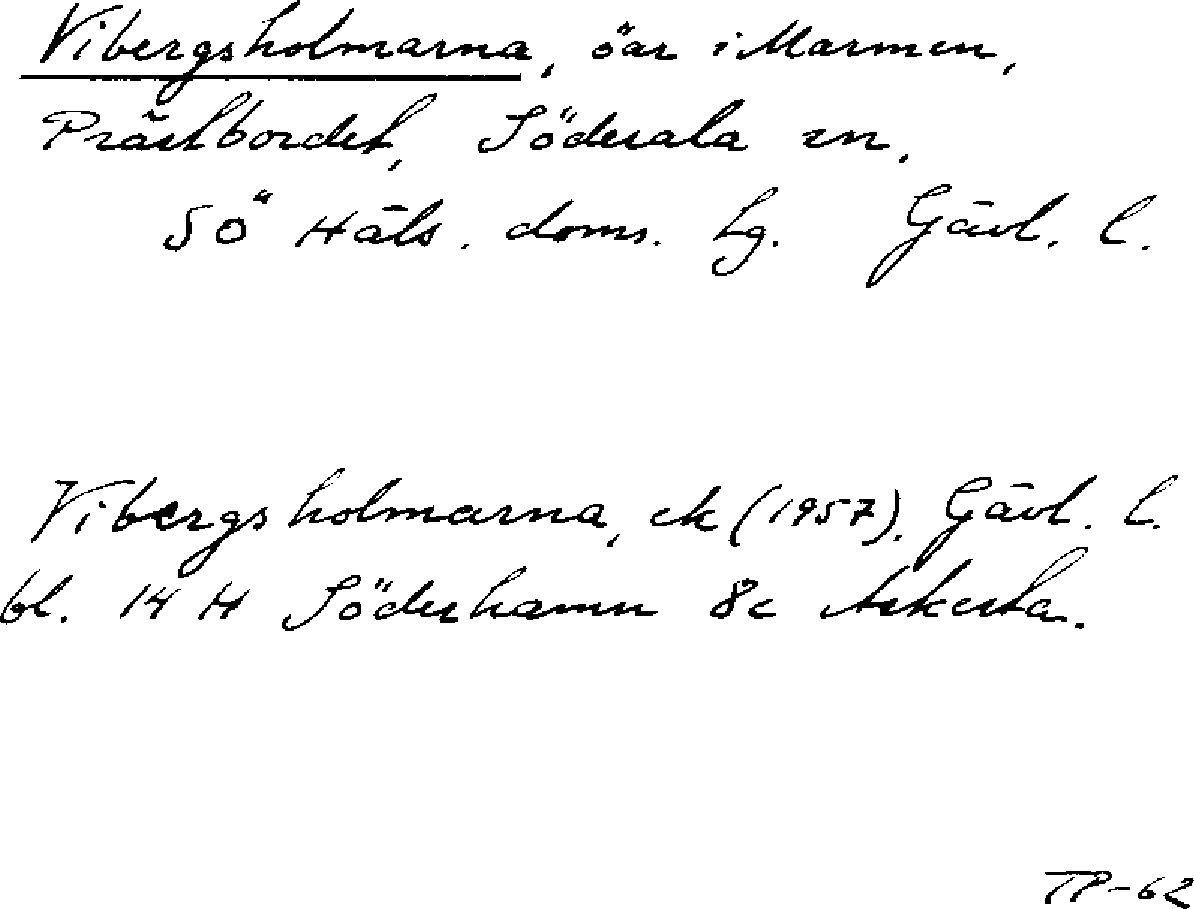 Vibergsholmarna, öar i Marmen,
Prästbordet, Söderala sn,
SÖ Häls. doms. hg. Gävl. l.
Vibergsholmarna, ek (1957). Gävl. l.
bl. 14 H Söderhamn 8c Askesta.
TP-62